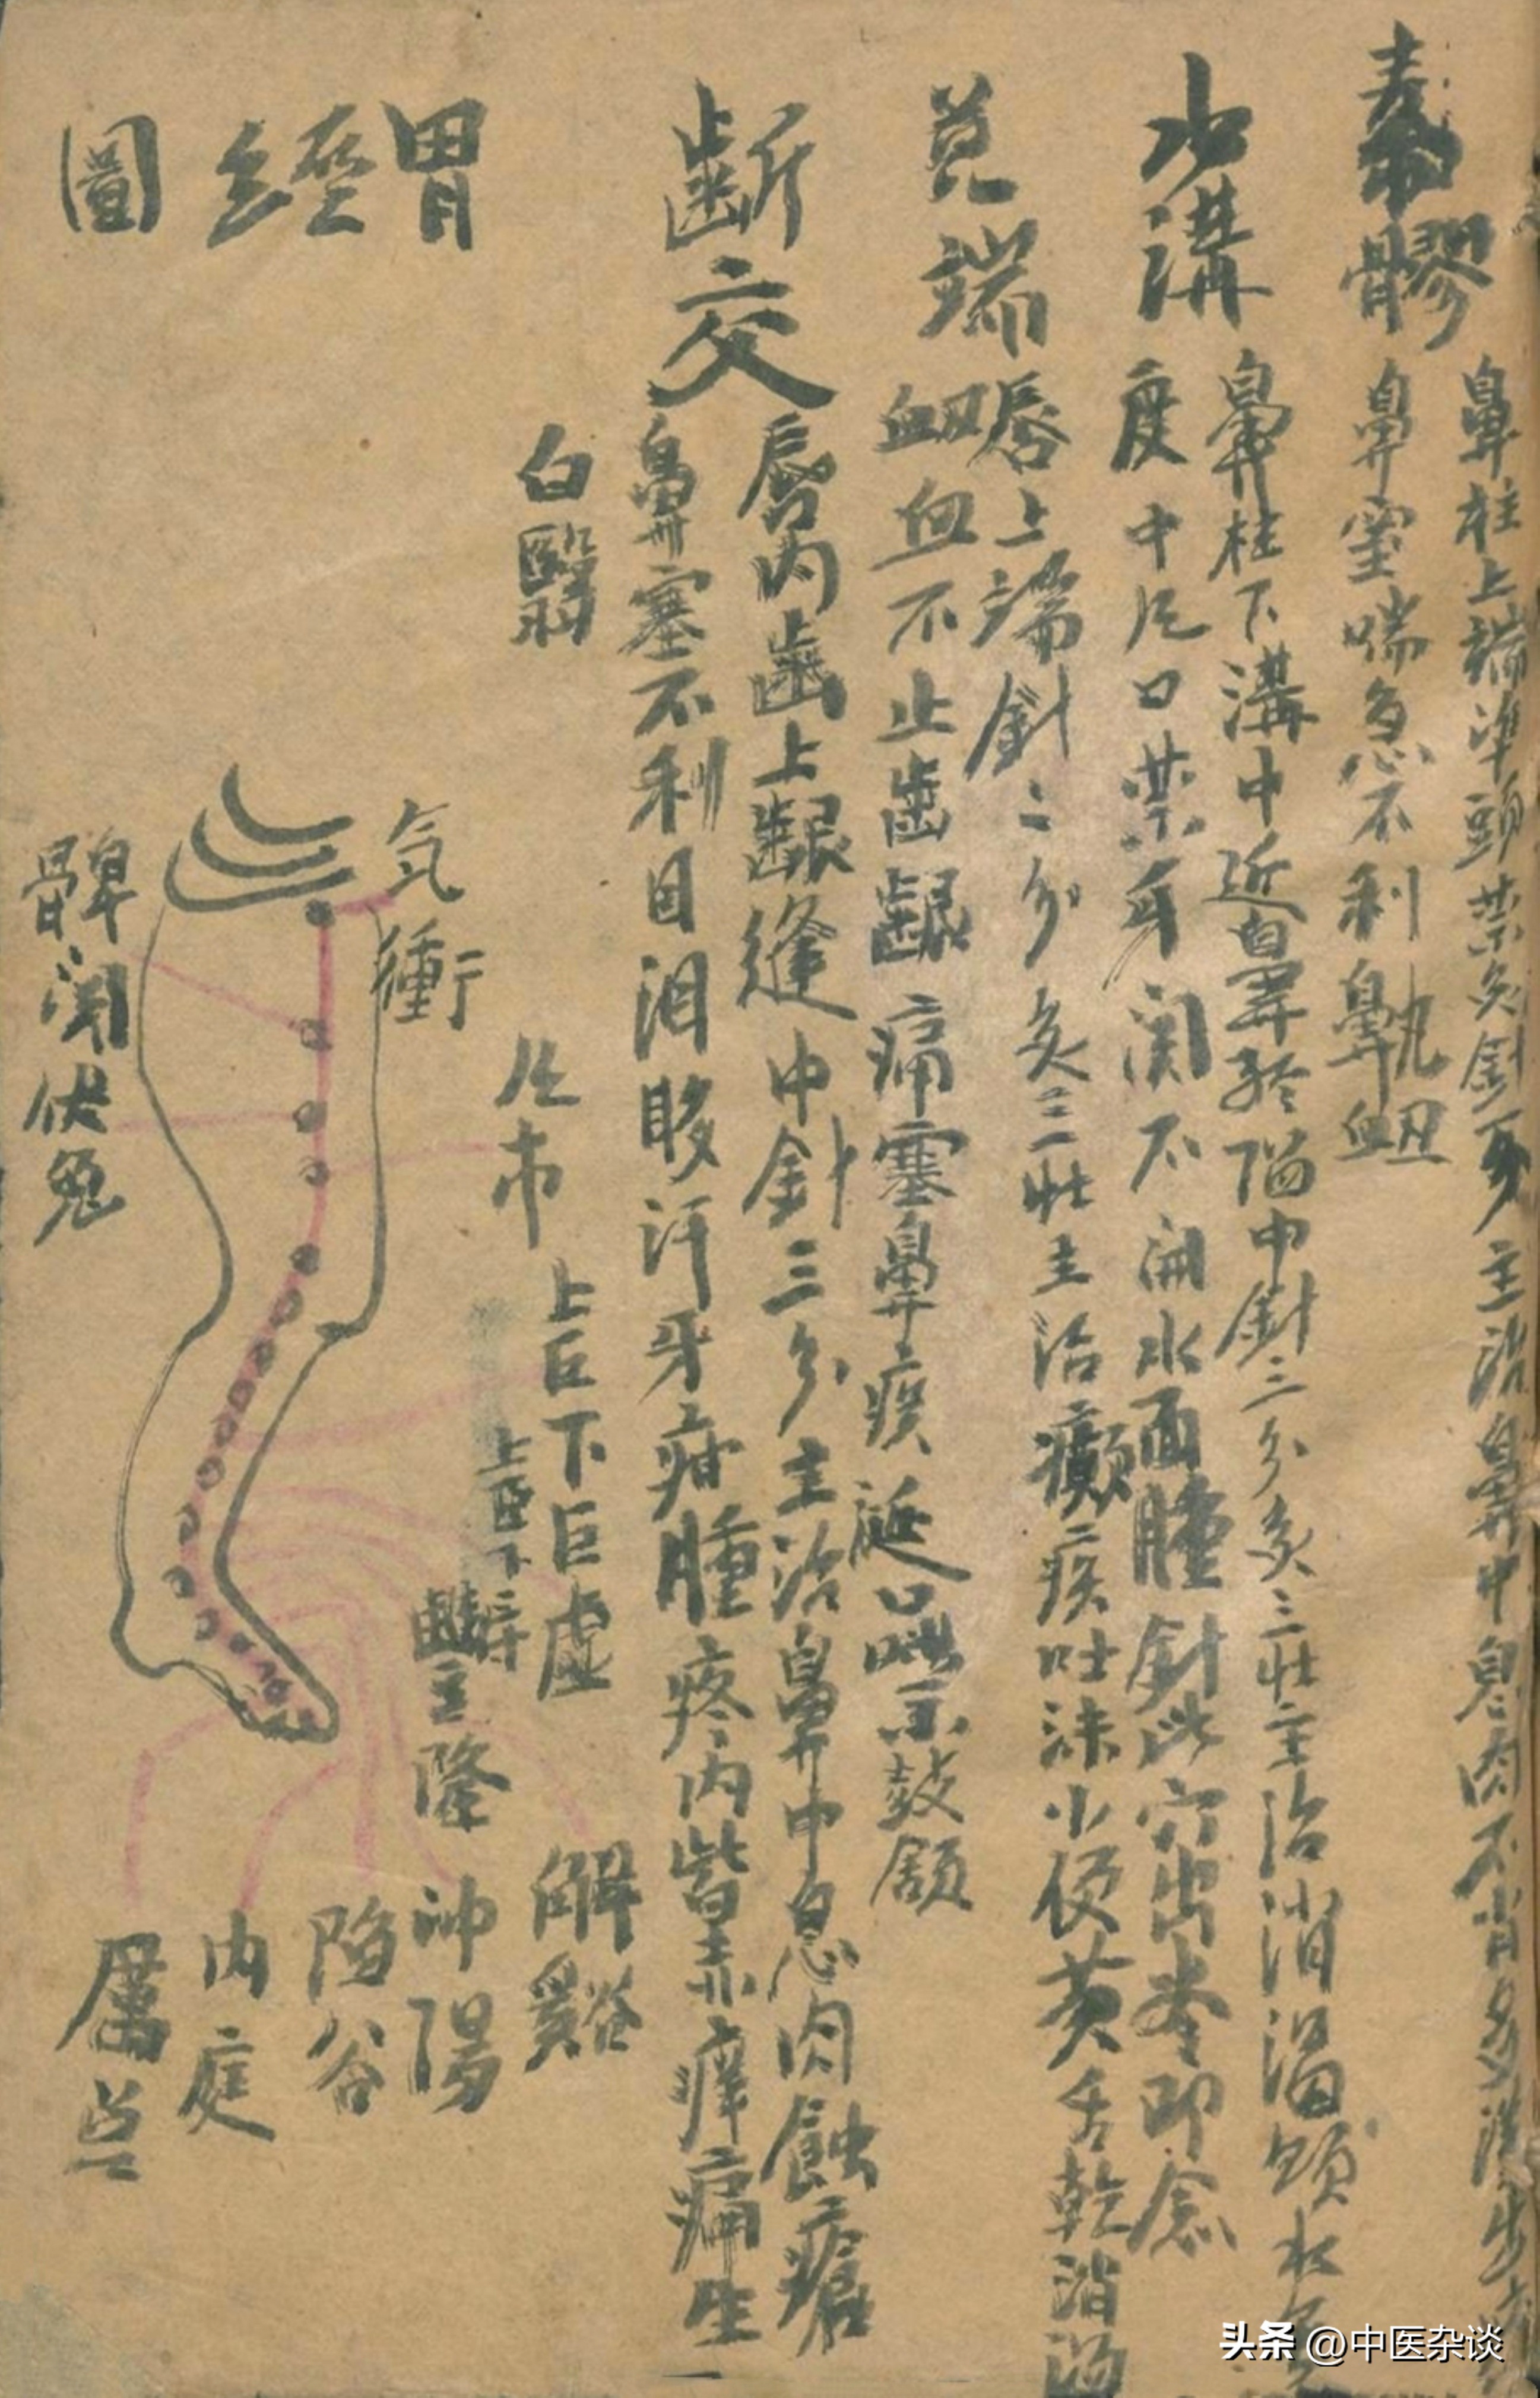 素髎
鼻柱上端準頭禁灸針一分主治鼻中息肉不消多涕
鼻窒喘息不利鼻鼽衄
水溝
鼻柱下溝中近鼻孔陷中針三分灸三壮主治消渴頭水
度中尺口禁牙関不開水面腫針此穴出水即愈
兑端
唇上端針二分灸三壮主治癲疾吐沫小便黄舌乾消渴
衄血不止歯齦痛塞鼻痰涎口噤鼓頷
齗交
唇内歯上齦縫中針三分主治鼻中息肉蝕瘡
鼻塞不利目泪眵汗牙疳腫疼内眥赤痒痛生
白翳
胃經圖
气衝
髀関
伏兔
上巨下巨虚
豐隆
解谿
冲陽
陷谷
内庭
厲兑
头条 @中医杂谈